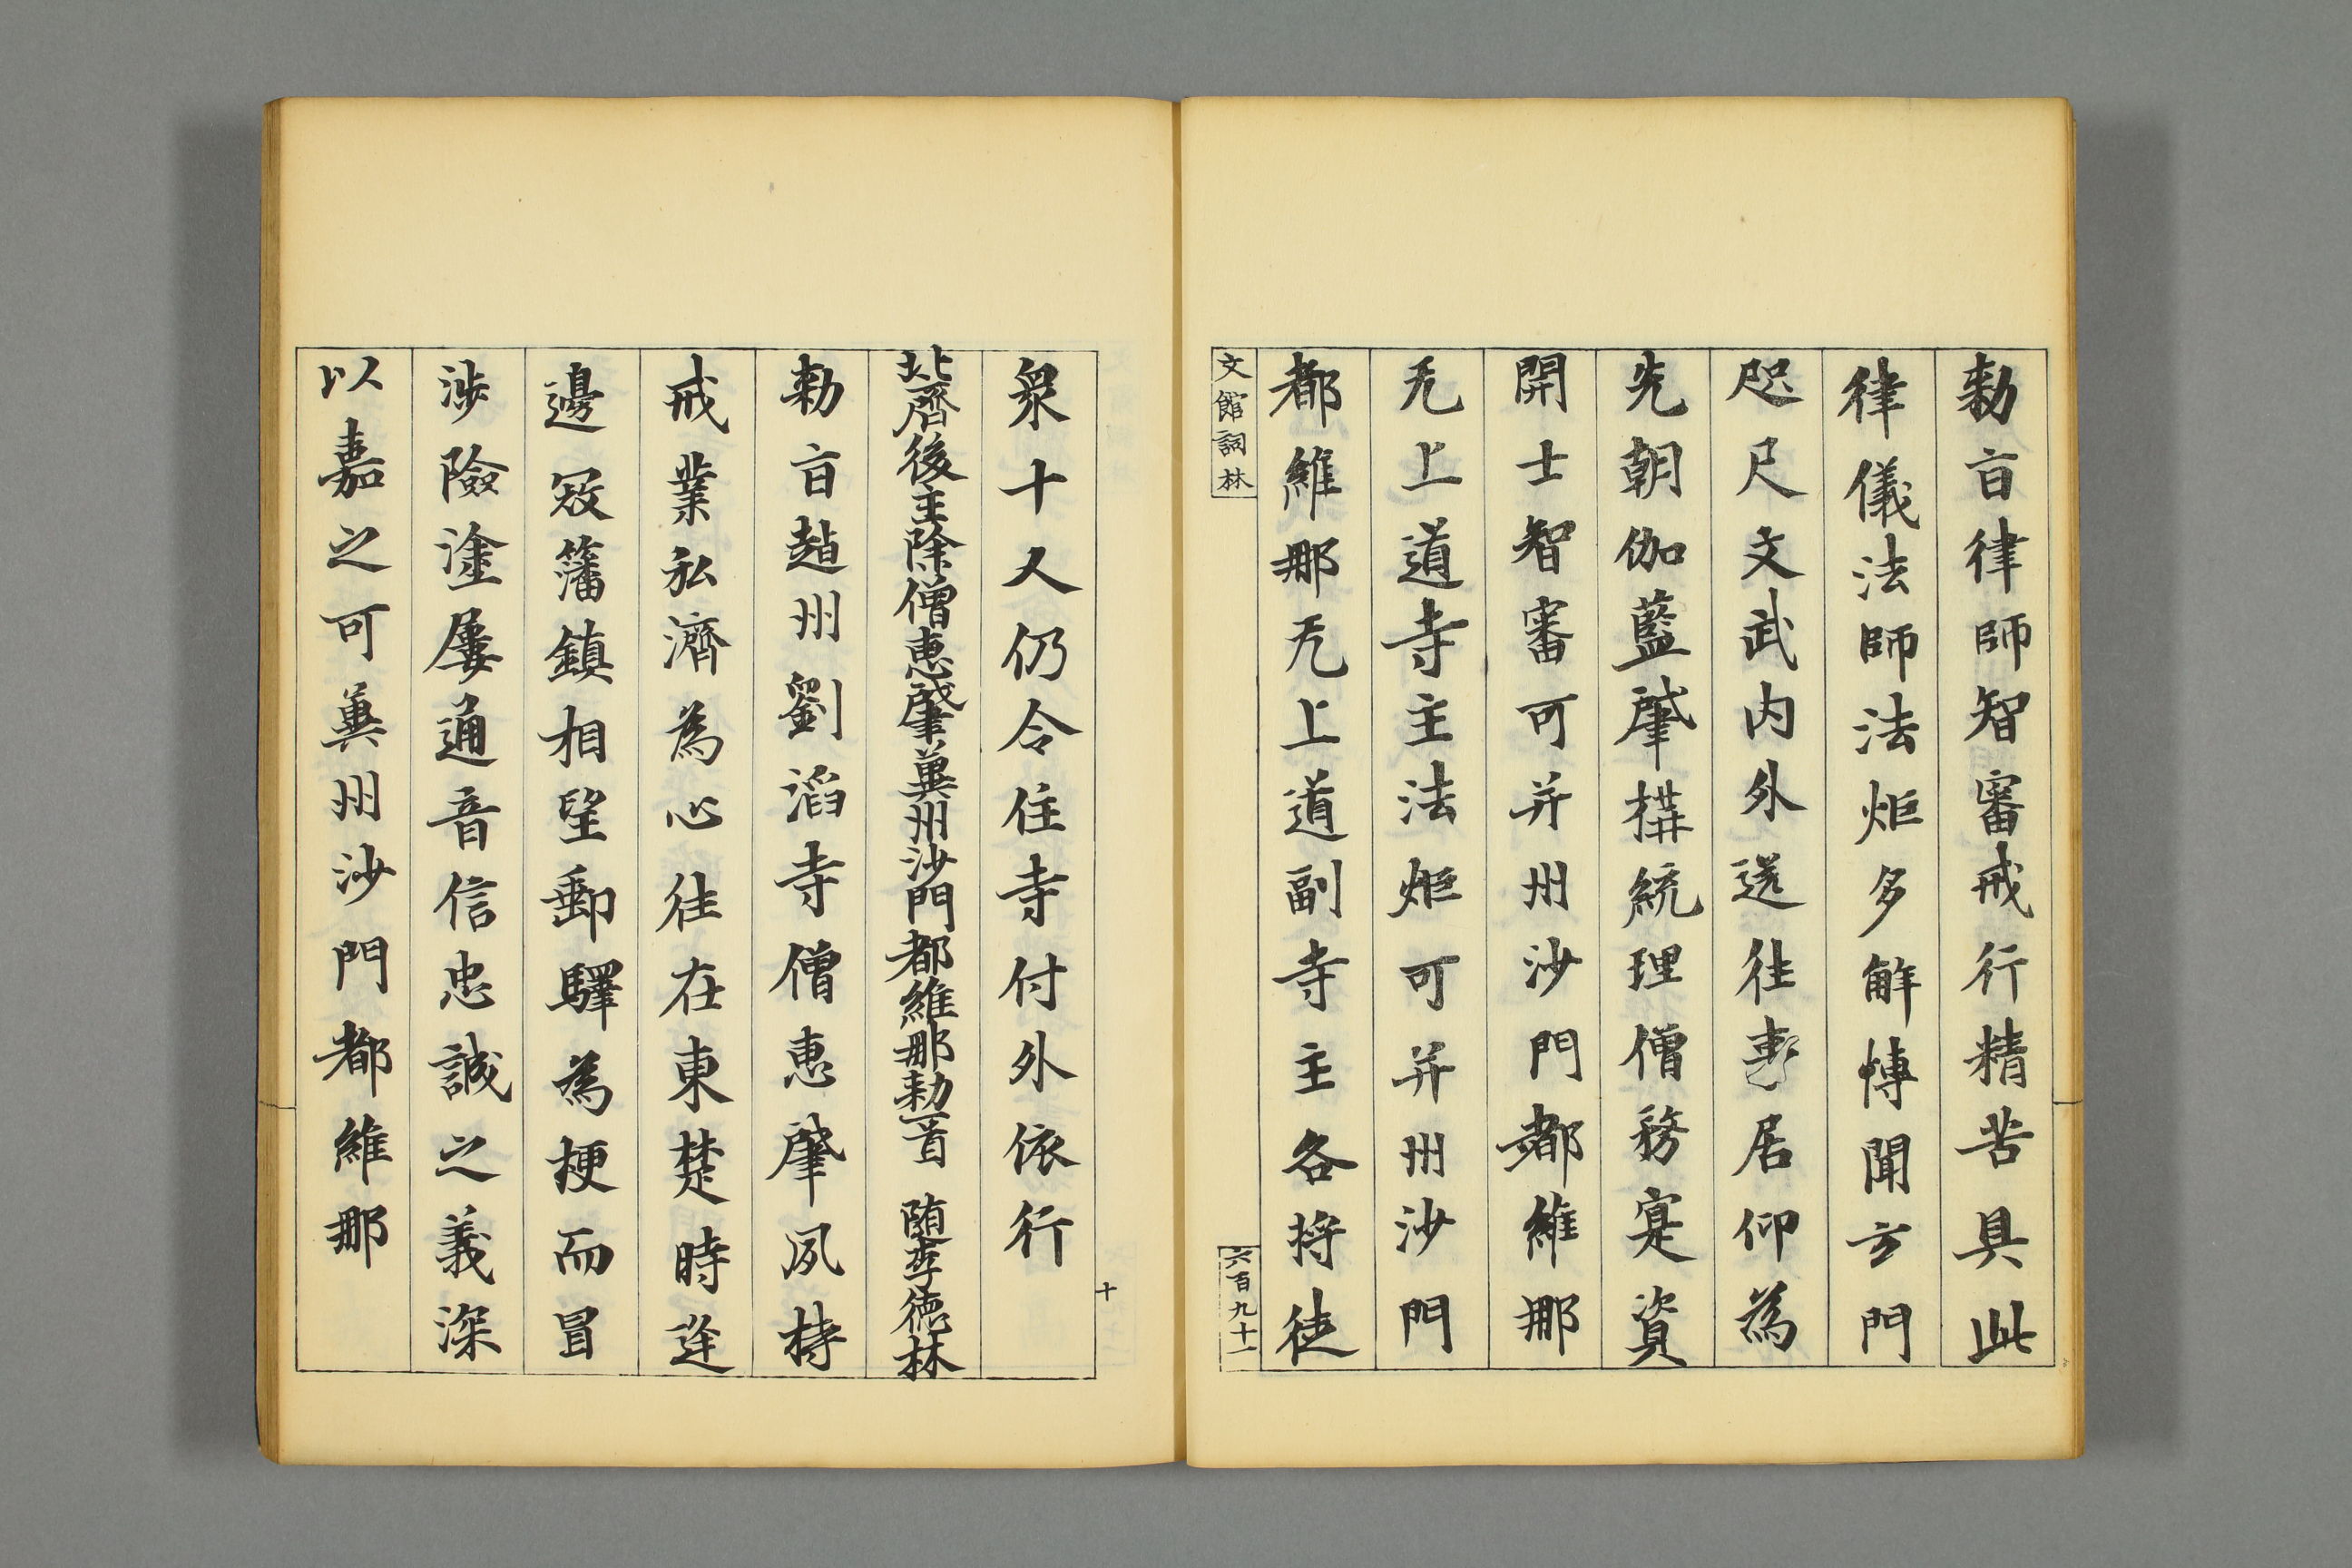 勅旨律師智審戒行精苦具此
律儀法師法炬多解愽聞玄門
咫尺文武内外送往事居仰為
先朝伽藍肇構統理僧務寔資
開士智審可并州沙門都維那
无上道寺主法炬可并州沙門
都維那无上道副寺主各将徒
文館詞林
六百九十一
十
衆十人仍令住寺付外依行
北齊後主除僧惠肇冀州沙門都維那勅一首 随李德林
勅旨趙州劉滔寺僧惠肇夙持
戒業弘濟為心往在東楚時逢
邊寇藩鎮相望郵驛為梗而冒
涉險塗屢通音信忠誠之義深
以嘉之可冀州沙門都維那